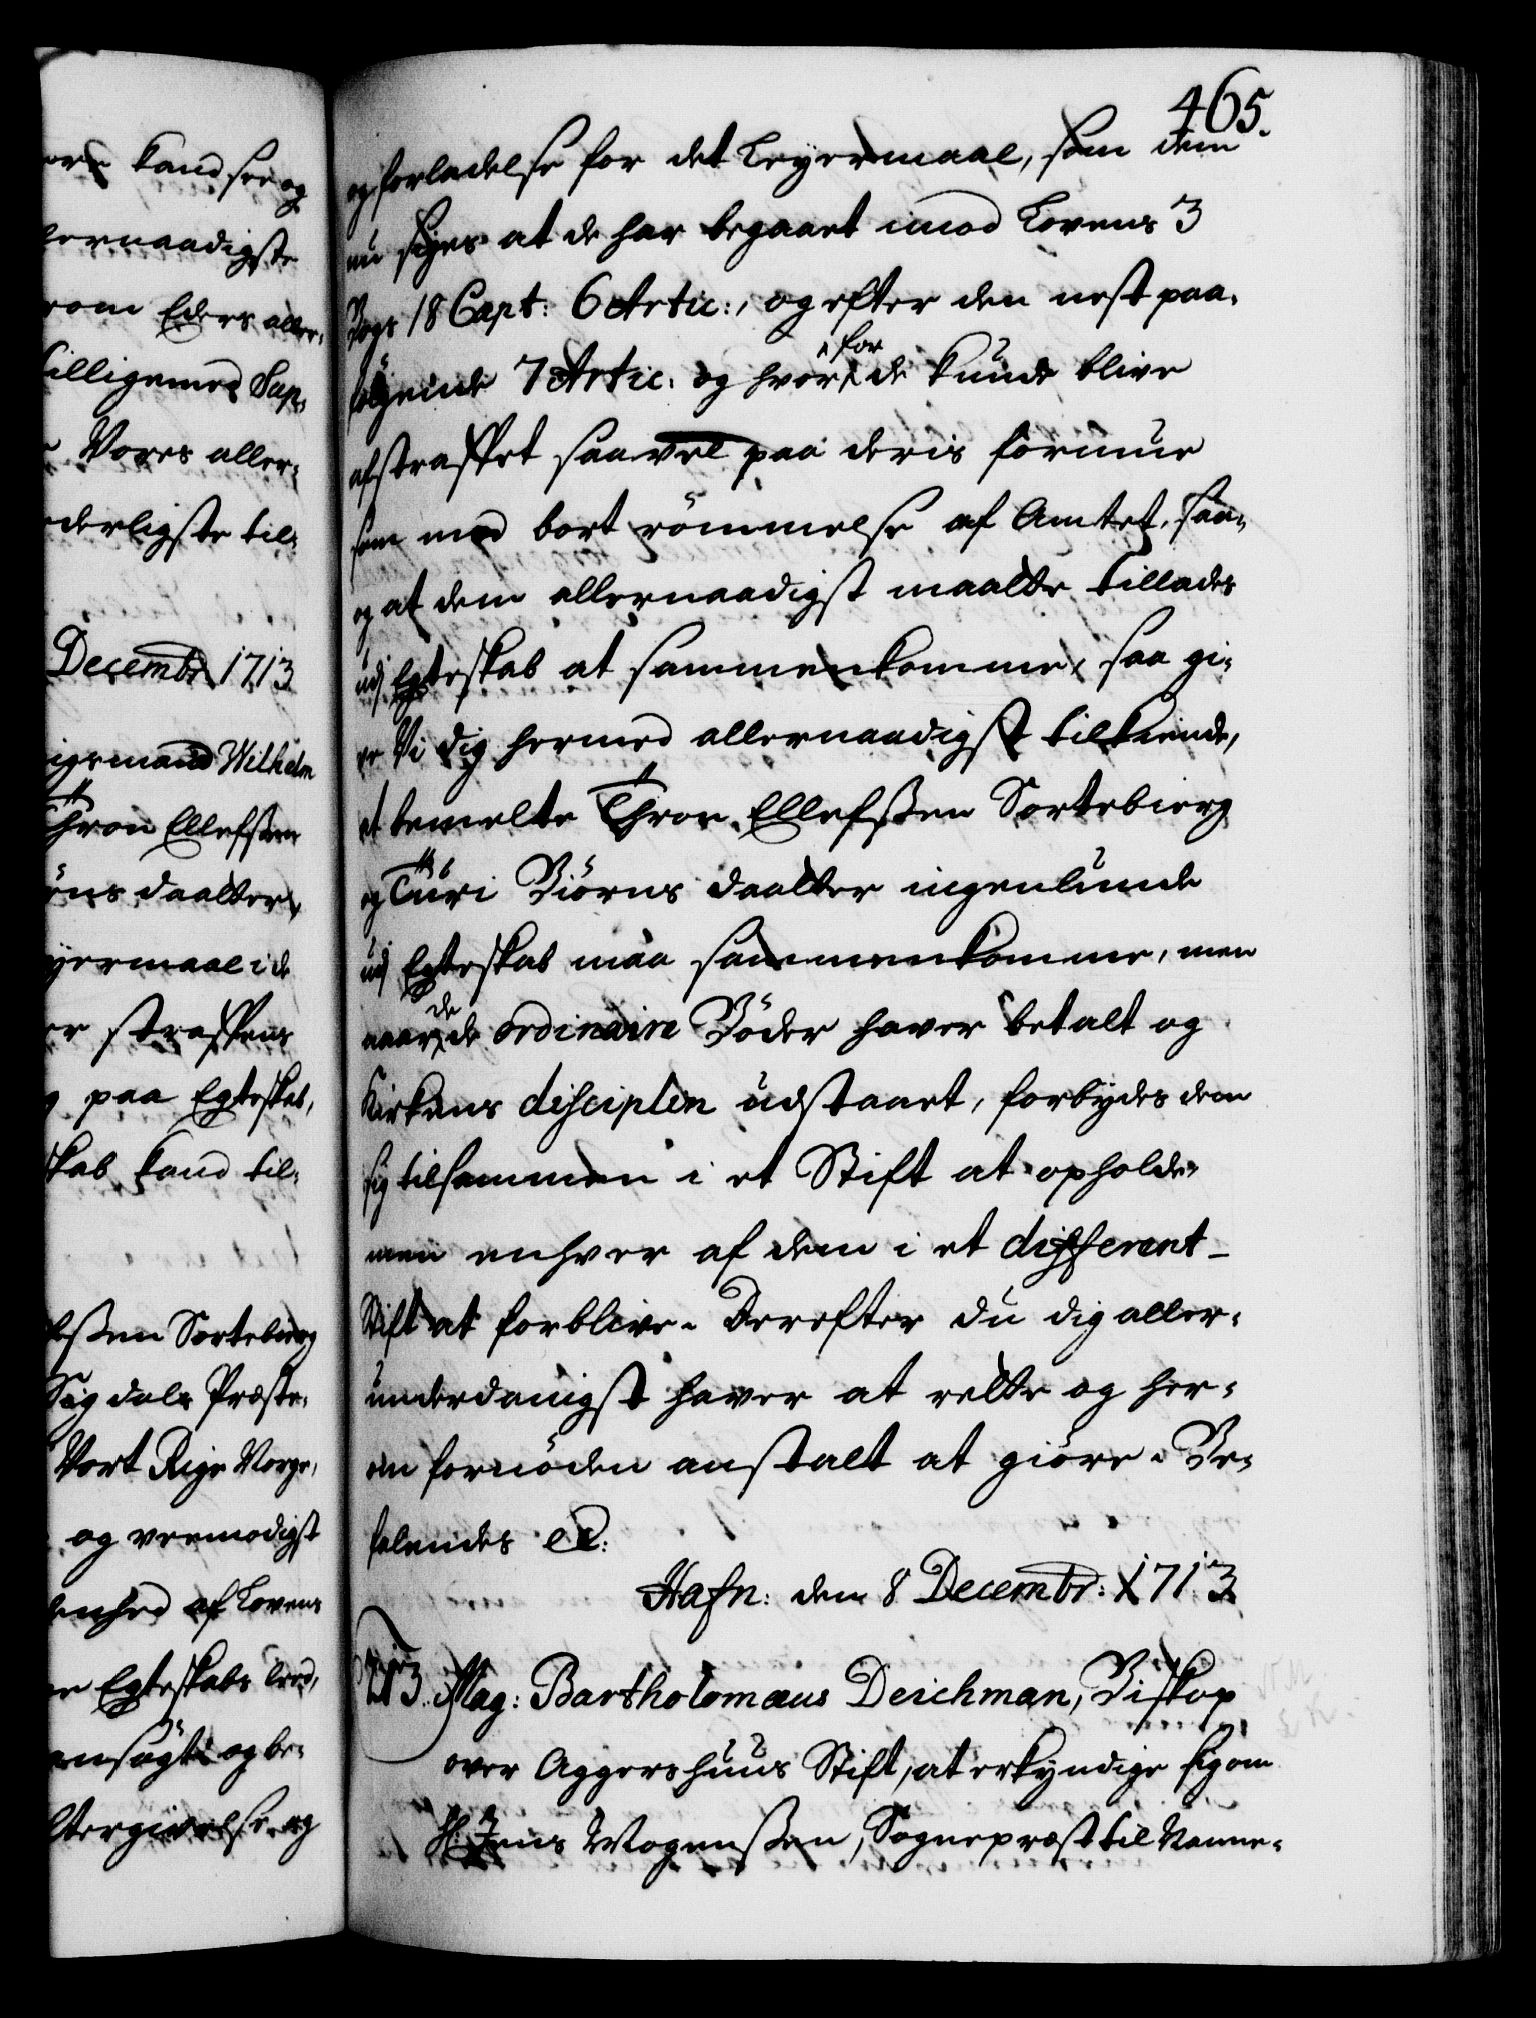 ere kand see og
lernaadigste
rom Eders aller-
tilligemed Sup-
Vores aller-
derligste til-
Decembr 1713
igsmand Wilhelm
Thron Ellefssen
örns daatter,
yermaal i de
er straffens
paa Egteskab,
skab kand til-
efssen Sortebierg
Sigdals Præste-
Vort Rige Norge,
og veemodigst
enhed af Lovens
Egteskabs bred,
ansögt og be-
ttergivelse og
465.
og forladelse for det Leyermaal, som dem
nu siges at de har begaaet imod Lovens 3
Bogs 18 Capt: 6 Artic:, og efter den nest paa-
fölgende 7 Artic. og hvor for de kunde blive
afstraffet saavel paa deris formue
som med bort römmelse af Amtet, saa-
og at dem allernaadigst maatte tillades
udj Egteskab at sammenkomme, saa gi-
ve Vi dig hermed allernaadigst tilkiende,
at bemelte Thron Ellefssen Sortebierg
og Turi Biörns daatter ingenlunde
udj Egteskab maa sammenkomme, men
naar de de ordinaire Böder haver betalt og
Kirkens disciplin udstaaet, forbydes dem
sig tilsammen i et Stift at opholde,
men enhver af dem i et different
Stift at forblive. Derefter du dig aller-
underdanigst haver at rette og her-
om fornöden anstalt at giöre. Be-
falendes etc:
Hafn: den 8 Decembr: 1713
Mag: Bartholomæus Deichman, Biskop
over Aggershuus Stift, at erkyndige sig om
Hr. Jens Mogenssen, Sognepræst til Nanne-